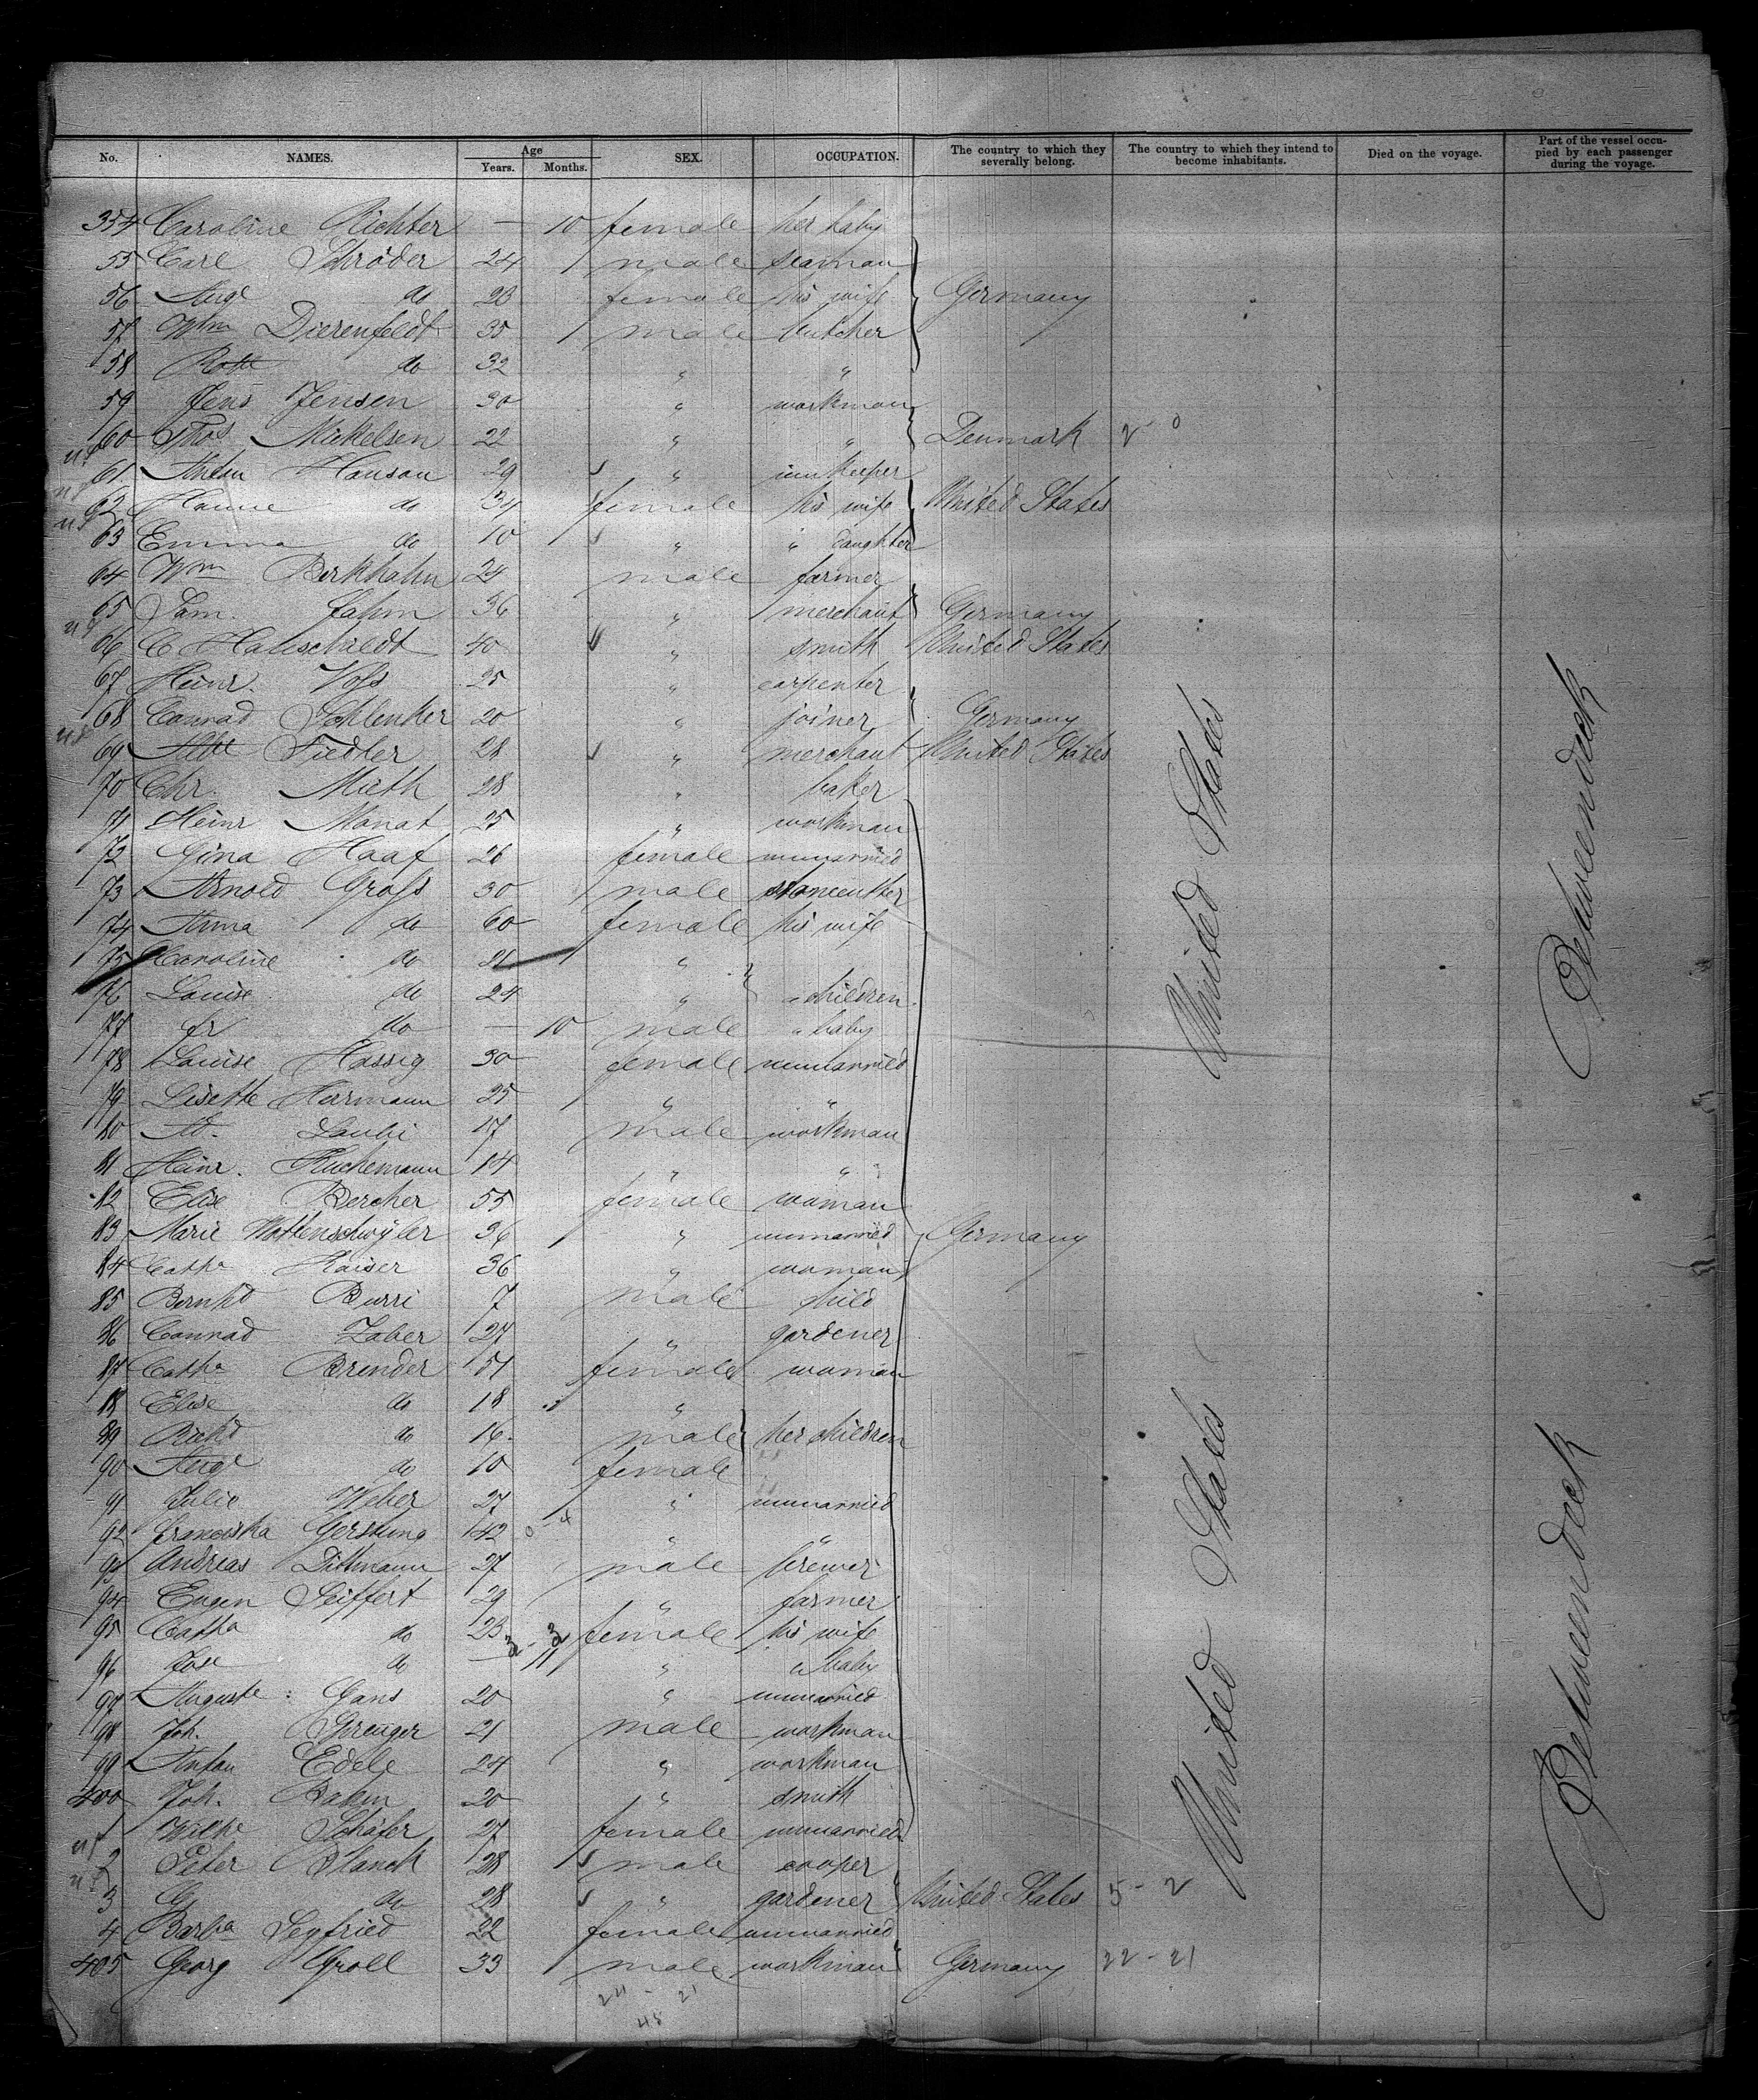 No. NAMES. Age Years. Months. SEX. OCCUPATION. The country to which they severally belong. The country to which they intend to become inhabitants. Died on the voyage. Part of the vessel occupied by each passenger during the voyage.
354 Caroline Richter — 10 female her baby
55 Carl Schröder 24 male seaman
56 Augte do 23 female his wife Germany
57 Wm Dierenfeldt 35 male butcher
58 do 32 " "
59 Jens Jensen 30 " workman
60 Thos Mickelsen 22 " " Denmark 2 - 0
61 Anton Hanson 29 " innkeeper
62 Hanne do 34 female his wife United States
63 Emma do 10 " " daughter
64 Wm Berkhahn 24 male farmer
65 Sam. Jahm 36 " merchant Germany
66 C 40 " smith United States
67 Heinr. Voss 25 " carpenter
68 Conrad Schlenker 20 " joiner Germany
69 Fiedler 28 " merchant United States
70 Chr. Mieth 28 " baker
71 Heinr Monat 25 " workman
72 Gina Haaf 26 female unmarried
73 Arnold Gross 30 male stonecutter
74 Anna do 60 female his wife
75 Caroline do 21 "
76 Louise do 24 " " children
77 Fr do — 10 male " baby
78 Louise Hassig 30 female unmarried
79 Lisette Hermann 25 " "
80 Ad. Laubi 17 male workman
81 Heinr. 14 " "
82 Elise Bercher 55 female woman
83 Marie Wattenschwyler 36 " unmarried Germany
84 Catha Kaiser 36 " woman
85 Bernhd Burri 7 male child
86 Conrad Zaber 27 " gardener
87 Catha Brender 51 female woman
88 Elise do 18 "
89 Richd do 16 male her children
90 Augte do 10 female
91 Julie Weber 27 " unmarried
92 Franciska Gerstung 42 " "
93 Andreas Dittmann 27 male brewer
94 Eugen Seiffert 29 " farmer
95 Catha do 23 female his wife
96 Jose do — 11 " " baby
97 Auguste Gans 20 " unmarried
98 Joh. Grenger 21 male workman
99 Anton Edele 24 " workman
400 Joh. Bahm 20 " smith
1 Wilhe Schäfer 27 female unmarried
2 Peter Blanck 28 male cooper
3 G do 28 " gardener United States 5 - 2
4 Barba Segfried 22 female unmarried
405 Georg Groll 33 male workman Germany 22 - 21
24 - 21
45
United States
United States
Betweendeck
Betweendeck